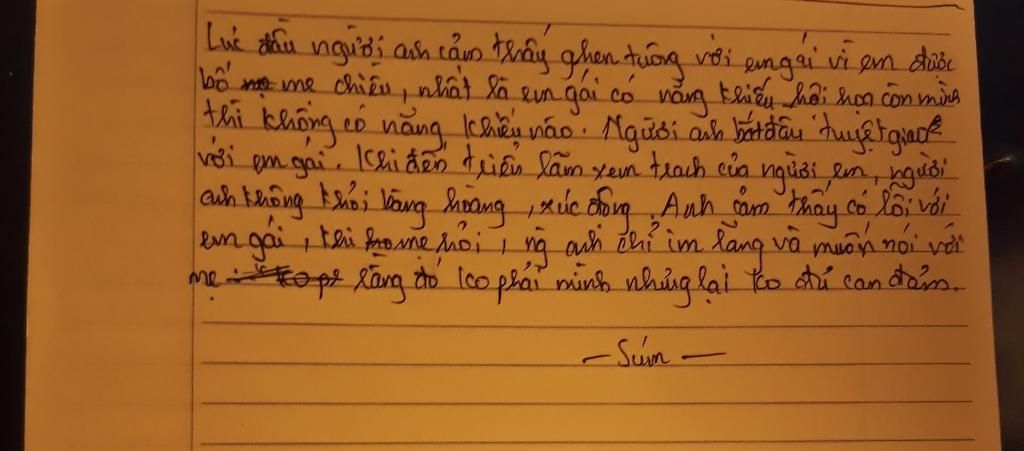 Lúc đầu người anh cảm thấy ghen tuông với em gái vì em được
bố mẹ chiều, nhất là em gái có năng khiếu hội họa còn mình
thì không có năng khiếu nào. Người anh bắt đầu tuyệt giao
với em gái. Khi đến triển lãm xem trach của người em, người
anh không khỏi bàng hoàng, xúc động. Anh cảm thấy có lỗi với
em gái, khi mẹ hỏi, ng anh chỉ im lặng và muốn nói với
mẹ rằng đó ko phải mình nhưng lại ko đủ can đảm.